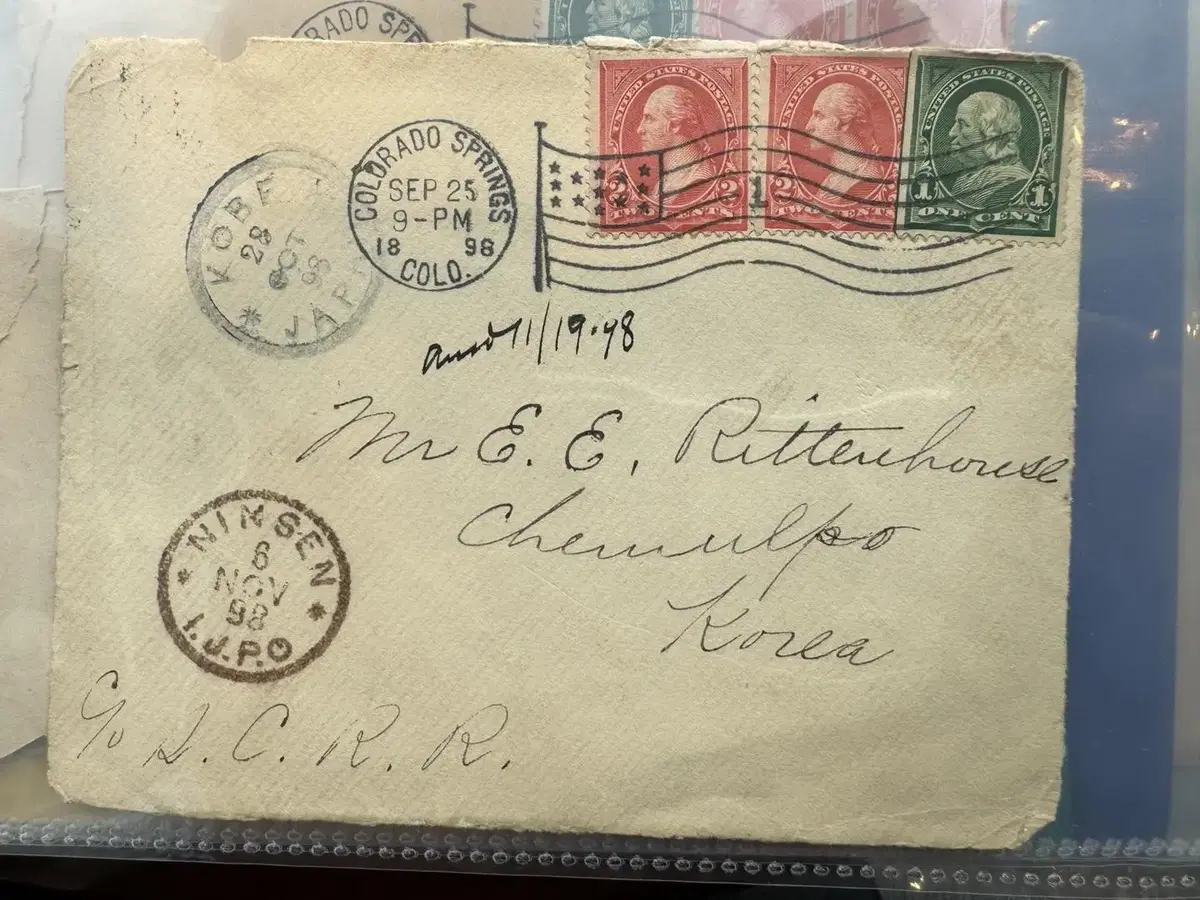 COLORADO SPRINGS
SEP 25
9-PM
18 98
COLO.
UNITED STATES POSTAGE
2 2
TWO CENTS
UNITED STATES POSTAGE
2
TWO CENTS
UNITED STATES POSTAGE
1 1
ONE CENT
1
KOBE
28
OCT
98
JAPAN
11/19.98
Mr E. E. Rittenhouse
Chemulpo
Korea
NINSEN
6
NOV
98
I.J.P.O
C/o S. C. R. R.